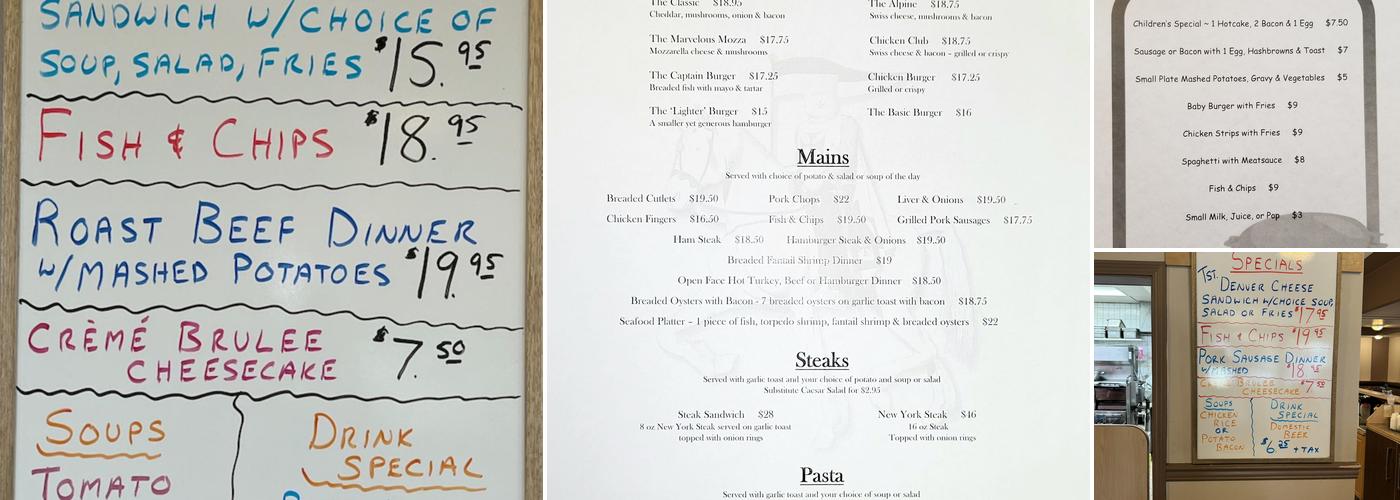 SANDWICH W/CHOICE OF
SOUP, SALAD, FRIES $15.95
FISH & CHIPS $18.95
ROAST BEEF DINNER
W/MASHED POTATOES $19.95
CRÈMÉ BRULEE
CHEESECAKE $7.50
SOUPS
TOMATO
DRINK
SPECIAL
The Classic $18.95
Cheddar, mushrooms, onion & bacon
The Alpine $18.75
Swiss cheese, mushrooms & bacon
The Marvelous Mozza $17.75
Mozzarella cheese & mushrooms
Chicken Club $18.75
Swiss cheese & bacon – grilled or crispy
The Captain Burger $17.25
Breaded fish with mayo & tartar
Chicken Burger $17.25
Grilled or crispy
The 'Lighter' Burger $15
A smaller yet generous hamburger
The Basic Burger $16
Mains
Served with choice of potato & salad or soup of the day
Breaded Cutlets $19.50 Pork Chops $22 Liver & Onions $19.50
Chicken Fingers $16.50 Fish & Chips $19.50 Grilled Pork Sausages $17.75
Ham Steak $18.50 Hamburger Steak & Onions $19.50
Breaded Fantail Shrimp Dinner $19
Open Face Hot Turkey, Beef or Hamburger Dinner $18.50
Breaded Oysters with Bacon - 7 breaded oysters on garlic toast with bacon $18.75
Seafood Platter – 1 piece of fish, torpedo shrimp, fantail shrimp & breaded oysters $22
Steaks
Served with garlic toast and your choice of potato and soup or salad
Substitute Caesar Salad for $2.95
Steak Sandwich $28
8 oz New York Steak served on garlic toast
topped with onion rings
New York Steak $46
16 oz Steak
Topped with onion rings
Pasta
Served with garlic toast and your choice of soup or salad
Children's Special ~ 1 Hotcake, 2 Bacon & 1 Egg $7.50
Sausage or Bacon with 1 Egg, Hashbrowns & Toast $7
Small Plate Mashed Potatoes, Gravy & Vegetables $5
Baby Burger with Fries $9
Chicken Strips with Fries $9
Spaghetti with Meatsauce $8
Fish & Chips $9
Small Milk, Juice, or Pop $3
SPECIALS
TST. DENVER CHEESE
SANDWICH W/CHOICE SOUP,
SALAD OR FRIES $17.95
FISH & CHIPS $19.95
PORK SAUSAGE DINNER
W/MASHED $18.95
CRÈME BRULEE
CHEESECAKE $7.50
SOUPS
CHICKEN
RICE
OR
POTATO
BACON
DRINK
SPECIAL
DOMESTIC
BEER
$6.25 + TAX